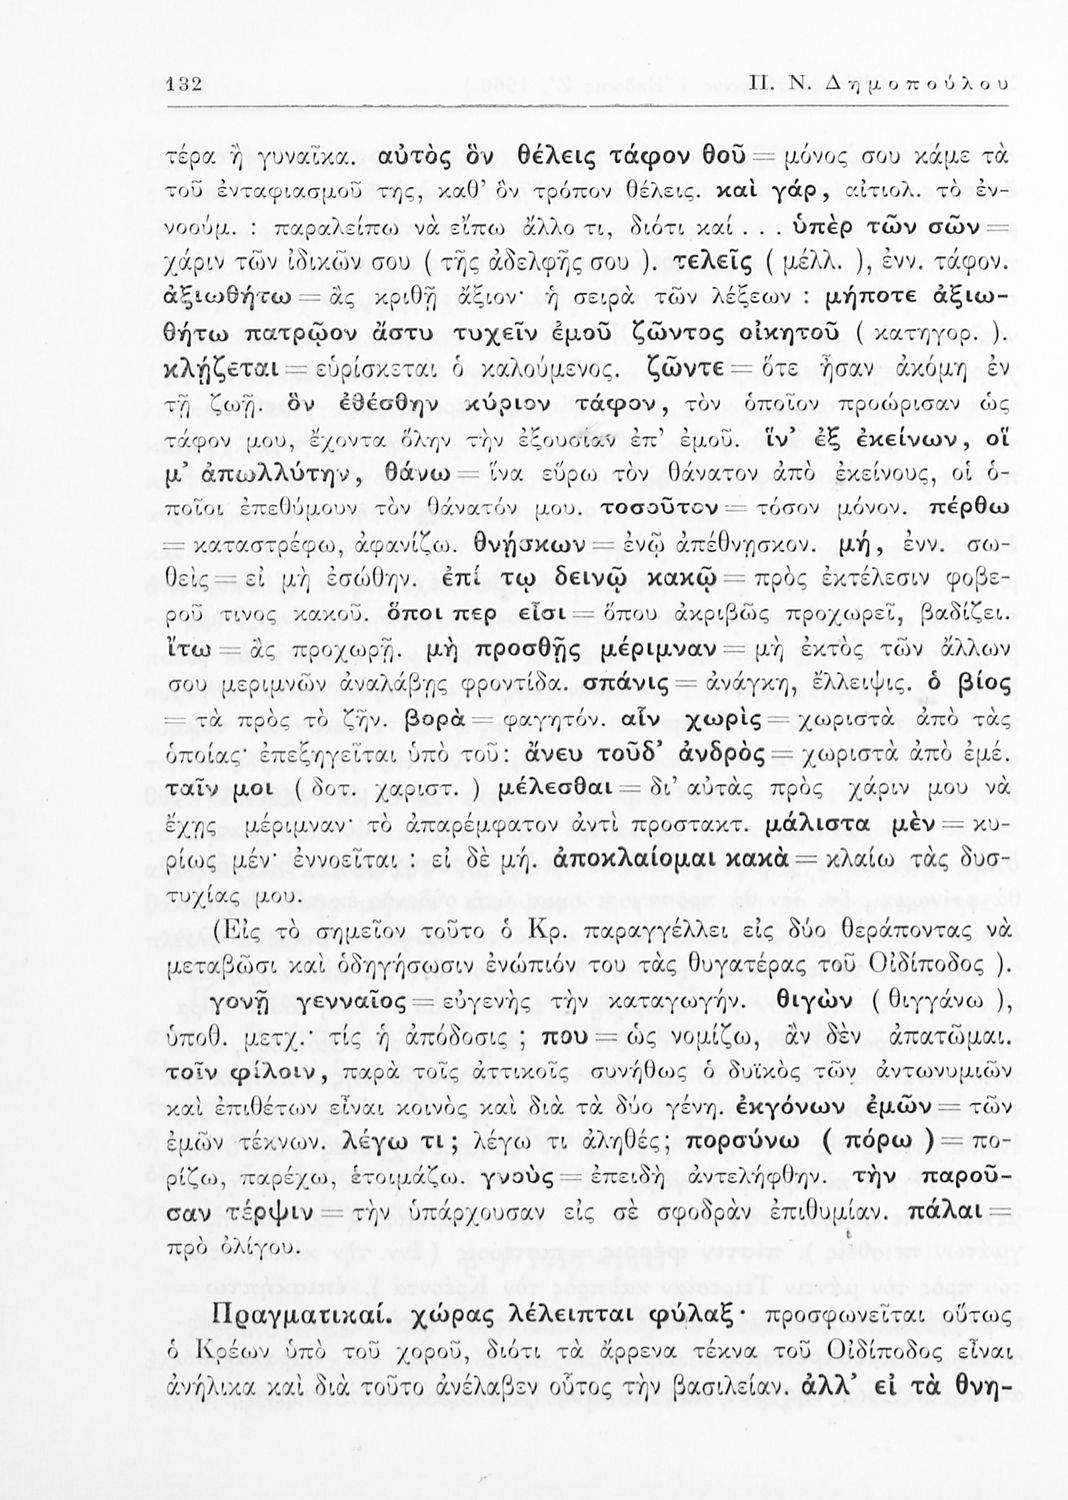 132 Π. Ν. Δημοπούλου
τέρα ἢ γυναῖκα. αὐτὸς ὃν θέλεις τάφον θοῦ = μόνος σου κάμε τὰ
τοῦ ἐνταφιασμοῦ της, καθ’ ὃν τρόπον θέλεις. καὶ γάρ, αἰτιολ. τὸ ἐν-
νοούμ. : παραλείπω νὰ εἴπω ἄλλο τι, διότι καί . . . ὑπὲρ τῶν σῶν =
χάριν τῶν ἰδικῶν σου ( τῆς ἀδελφῆς σου ). τελεῖς ( μέλλ. ), ἐνν. τάφον.
ἀξιωθήτω = ἂς κριθῇ ἄξιον· ἡ σειρὰ τῶν λέξεων : μήποτε ἀξιω-
θήτω πατρῷον ἄστυ τυχεῖν ἐμοῦ ζῶντος οἰκητοῦ ( κατηγορ. ).
κλῄζεται = εὑρίσκεται ὁ καλούμενος. ζῶντε = ὅτε ἦσαν ἀκόμη ἐν
τῇ ζωῇ. ὃν ἐθέσθην κύριον τάφον, τὸν ὁποῖον προώρισαν ὡς
τάφον μου, ἔχοντα ὅλην τὴν ἐξουσίαν ἐπ’ ἐμοῦ. ἵν’ ἐξ ἐκείνων, οἵ
μ’ ἀπωλλύτην, θάνω = ἵνα εὕρω τὸν θάνατον ἀπὸ ἐκείνους, οἱ ὁ-
ποῖοι ἐπεθύμουν τὸν θάνατόν μου. τοσοῦτον = τόσον μόνον. πέρθω
= καταστρέφω, ἀφανίζω. θνῄσκων = ἐνῷ ἀπέθνησκον. μή, ἐνν. σω-
θεὶς = εἰ μὴ ἐσώθην. ἐπί τῳ δεινῷ κακῷ = πρὸς ἐκτέλεσιν φοβε-
ροῦ τινος κακοῦ. ὅποι περ εἶσι = ὅπου ἀκριβῶς προχωρεῖ, βαδίζει.
ἴτω = ἂς προχωρῇ. μὴ προσθῇς μέριμναν = μὴ ἐκτὸς τῶν ἄλλων
σου μεριμνῶν ἀναλάβῃς φροντίδα. σπάνις = ἀνάγκη, ἔλλειψις. ὁ βίος
= τὰ πρὸς τὸ ζῆν. βορὰ = φαγητόν. αἷν χωρὶς = χωριστὰ ἀπὸ τὰς
ὁποίας· ἐπεξηγεῖται ὑπὸ τοῦ: ἄνευ τοῦδ’ ἀνδρὸς = χωριστὰ ἀπὸ ἐμέ.
ταῖν μοι ( δοτ. χαριστ. ) μέλεσθαι = δι’ αὐτὰς πρὸς χάριν μου νὰ
ἔχῃς μέριμναν· τὸ ἀπαρέμφατον ἀντὶ προστακτ. μάλιστα μὲν = κυ-
ρίως μέν· ἐννοεῖται : εἰ δὲ μή. ἀποκλαίομαι κακὰ = κλαίω τὰς δυσ-
τυχίας μου.
(Εἰς τὸ σημεῖον τοῦτο ὁ Κρ. παραγγέλλει εἰς δύο θεράποντας νὰ
μεταβῶσι καὶ ὁδηγήσωσιν ἐνώπιόν του τὰς θυγατέρας τοῦ Οἰδίποδος ).
γονῇ γενναῖος = εὐγενὴς τὴν καταγωγήν. θιγὼν ( θιγγάνω ),
ὑποθ. μετχ.· τίς ἡ ἀπόδοσις ; που = ὡς νομίζω, ἂν δὲν ἀπατῶμαι.
τοῖν φίλοιν, παρὰ τοῖς ἀττικοῖς συνήθως ὁ δυϊκὸς τῶν ἀντωνυμιῶν
καὶ ἐπιθέτων εἶναι κοινὸς καὶ διὰ τὰ δύο γένη. ἐκγόνων ἐμῶν = τῶν
ἐμῶν τέκνων. λέγω τι ; λέγω τι ἀληθές; πορσύνω ( πόρω ) = πο-
ρίζω, παρέχω, ἑτοιμάζω. γνοὺς = ἐπειδὴ ἀντελήφθην. τὴν παροῦ-
σαν τέρψιν = τὴν ὑπάρχουσαν εἰς σὲ σφοδρὰν ἐπιθυμίαν. πάλαι =
πρὸ ὀλίγου.
Πραγματικαί. χώρας λέλειπται φύλαξ· προσφωνεῖται οὕτως
ὁ Κρέων ὑπὸ τοῦ χοροῦ, διότι τὰ ἄρρενα τέκνα τοῦ Οἰδίποδος εἶναι
ἀνήλικα καὶ διὰ τοῦτο ἀνέλαβεν οὗτος τὴν βασιλείαν. ἀλλ’ εἰ τὰ θνη-